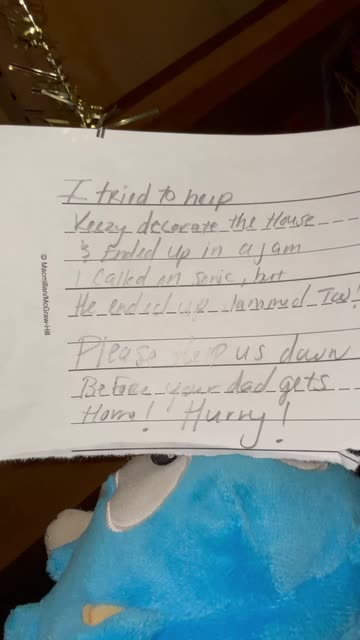 I tried to help
Keezy decorate the House
& Ended up in a jam
I called on sonic, but
He ended up Jammed Too!
Please help us down
Before your dad gets
Home! Hurry!
© Macmillan/McGraw-Hill